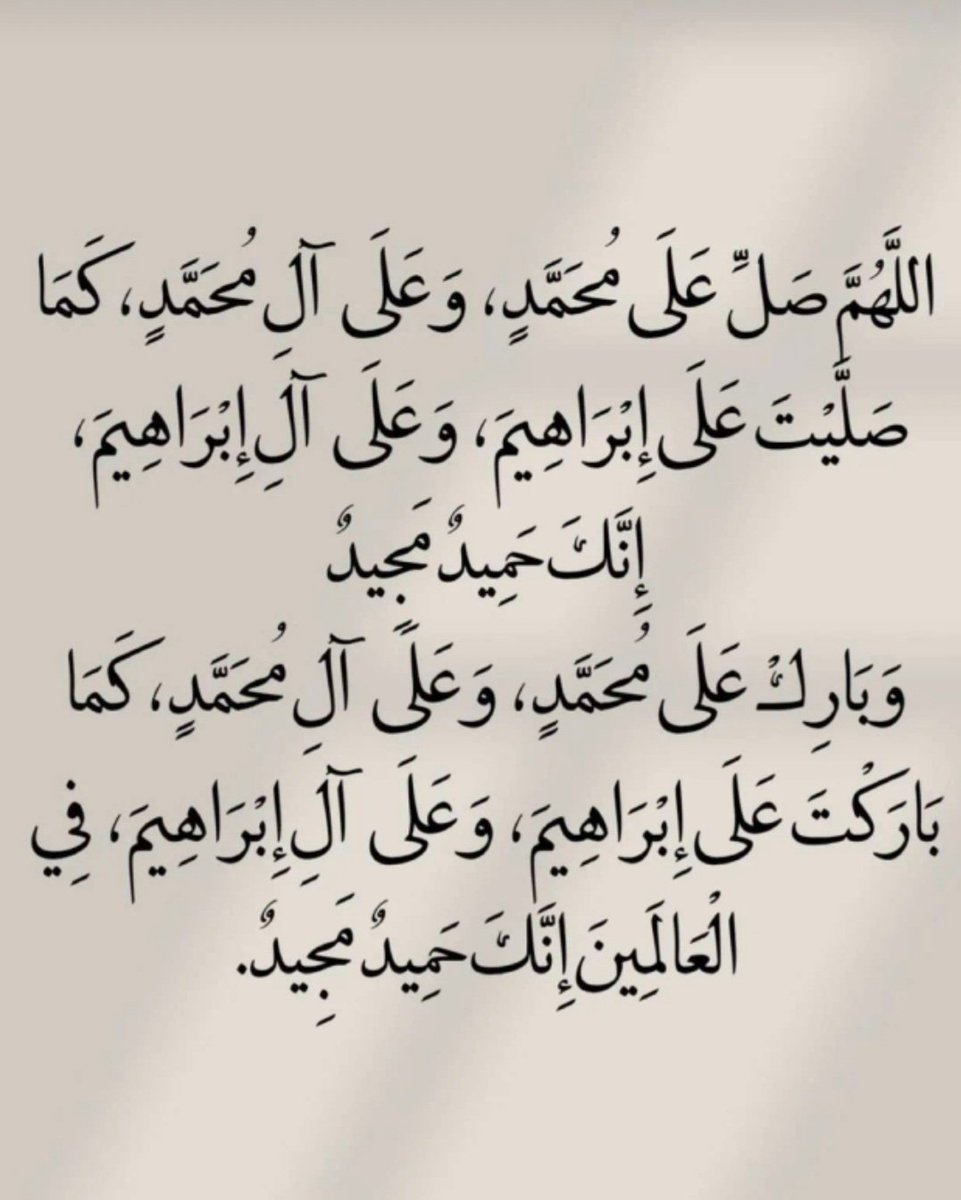 اللَّهُمَّ صَلِّ عَلَى مُحَمَّدٍ، وَعَلَى آلِ مُحَمَّدٍ، كَمَا
صَلَّيْتَ عَلَى إِبْرَاهِيمَ، وَعَلَى آلِ إِبْرَاهِيمَ،
إِنَّكَ حَمِيدٌ مَجِيدٌ
وَبَارِكْ عَلَى مُحَمَّدٍ، وَعَلَى آلِ مُحَمَّدٍ، كَمَا
بَارَكْتَ عَلَى إِبْرَاهِيمَ، وَعَلَى آلِ إِبْرَاهِيمَ، فِي
الْعَالَمِينَ إِنَّكَ حَمِيدٌ مَجِيدٌ.